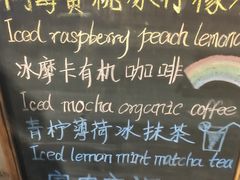 Iced raspberry peach lemona
冰摩卡有机咖啡
Iced mocha organic coffee
青柠薄荷冰抹茶
Iced lemon mint matcha tea